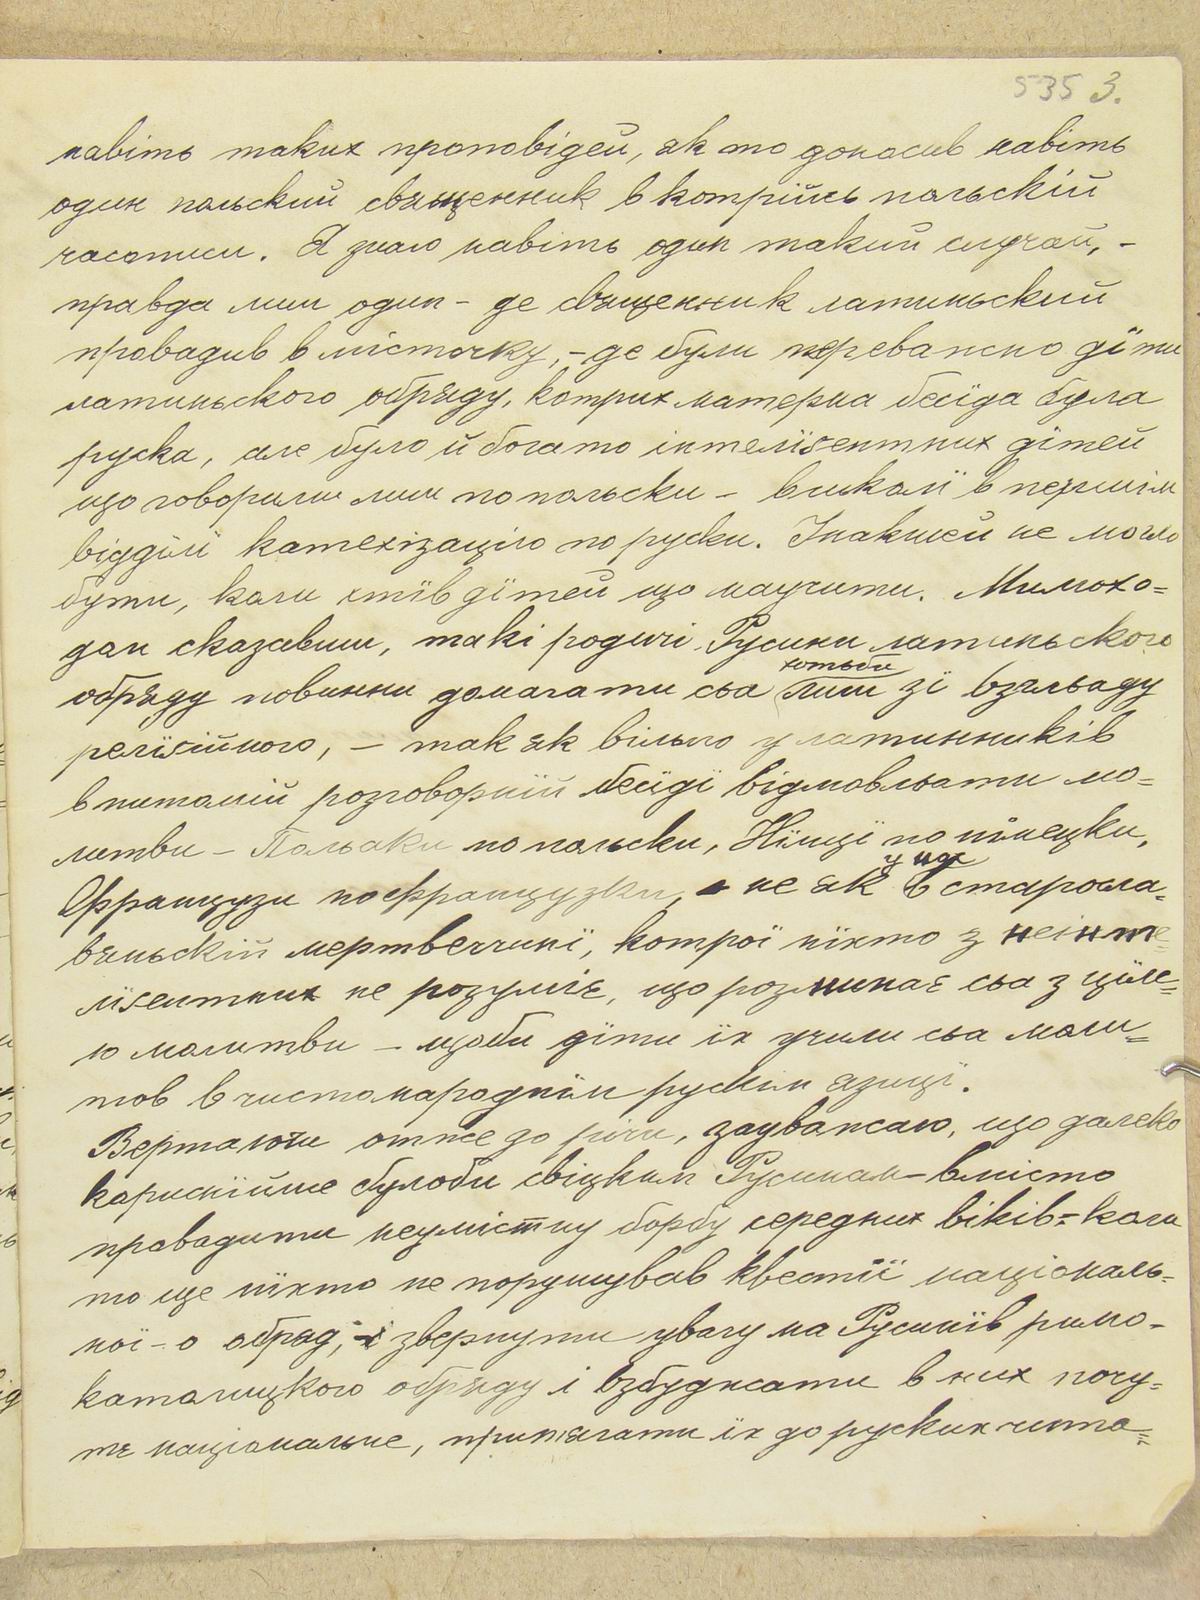 535 3.
навіть таких проповідей, як то доносив навіть
один польский священник в котрійсь польскій
часописи. Я знаю навіть один такий случай, –
правда лиш один – де священник латиньский
провадив в місточку, – де були переважно дїти
латиньского обряду, котрих матерна бесїда була
руска, але було й богато інтелїґентних дїтей
що говорили лиш по польски – в школї в першім
віддїлї катехізацію по руски. Інакшей не могло
бути, коли хтів дїтей що научити. Мимохо=
дом сказавши, такі родичі Русини латиньского
обряду повинни домагати сьа хотьби лиш зі взгльаду
релїґійного, – так як вільно у латинників
в питомій розговорній бесїдї відмовльати мо=
литви – Польаки по польски, Нїмцї по нїмецки,
Французи по французки, а не як у нас в старосла=
вяньскій мертвеччинї, котрої нїхто з неінте=
лїґентних не розуміє, що розминає сьа з цїле=
ю молитви – щоби дїти їх учили сьа моли=
тов в чисто народнїм рускім язицї.
Вертаючи отже до річи, зауважаю, що далеко
кориснїйше булоби свіцким Русинам – вмісто
провадити неумістну борбу середних віків = коли
то ще нїхто не порушував квестії національ=
ної – о обряд, – звернути увагу на Русинів римо-
католицкого обряду і взбуджати в них почу=
тє національне, притягати їх до руских чита=